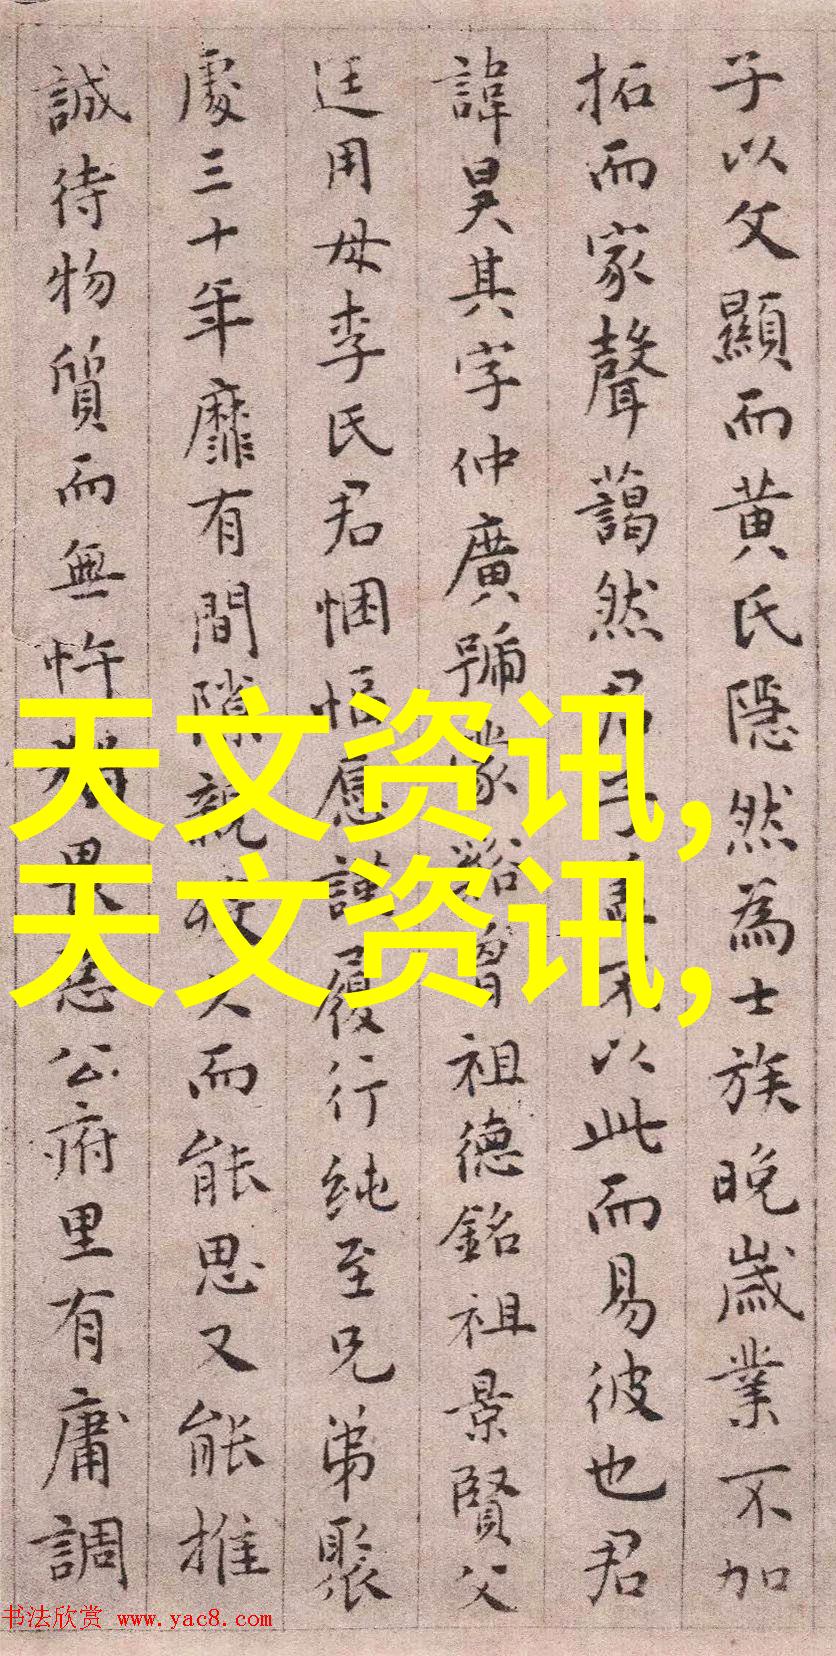 子以父顯而黄氏隱然為士族晚歲業不加
拓而家聲藹然君子不以此而易彼也君
諱昊其字仲廣號祖德銘祖景賢父
廷用母李氏君悃愊應謹履行純至兄弟聚
處三十年靡有間隙親而能思又能推
誠待物質而無忤畏公府里有庸調
天文资讯,
天文资讯,
书法欣赏 www.yac8.com